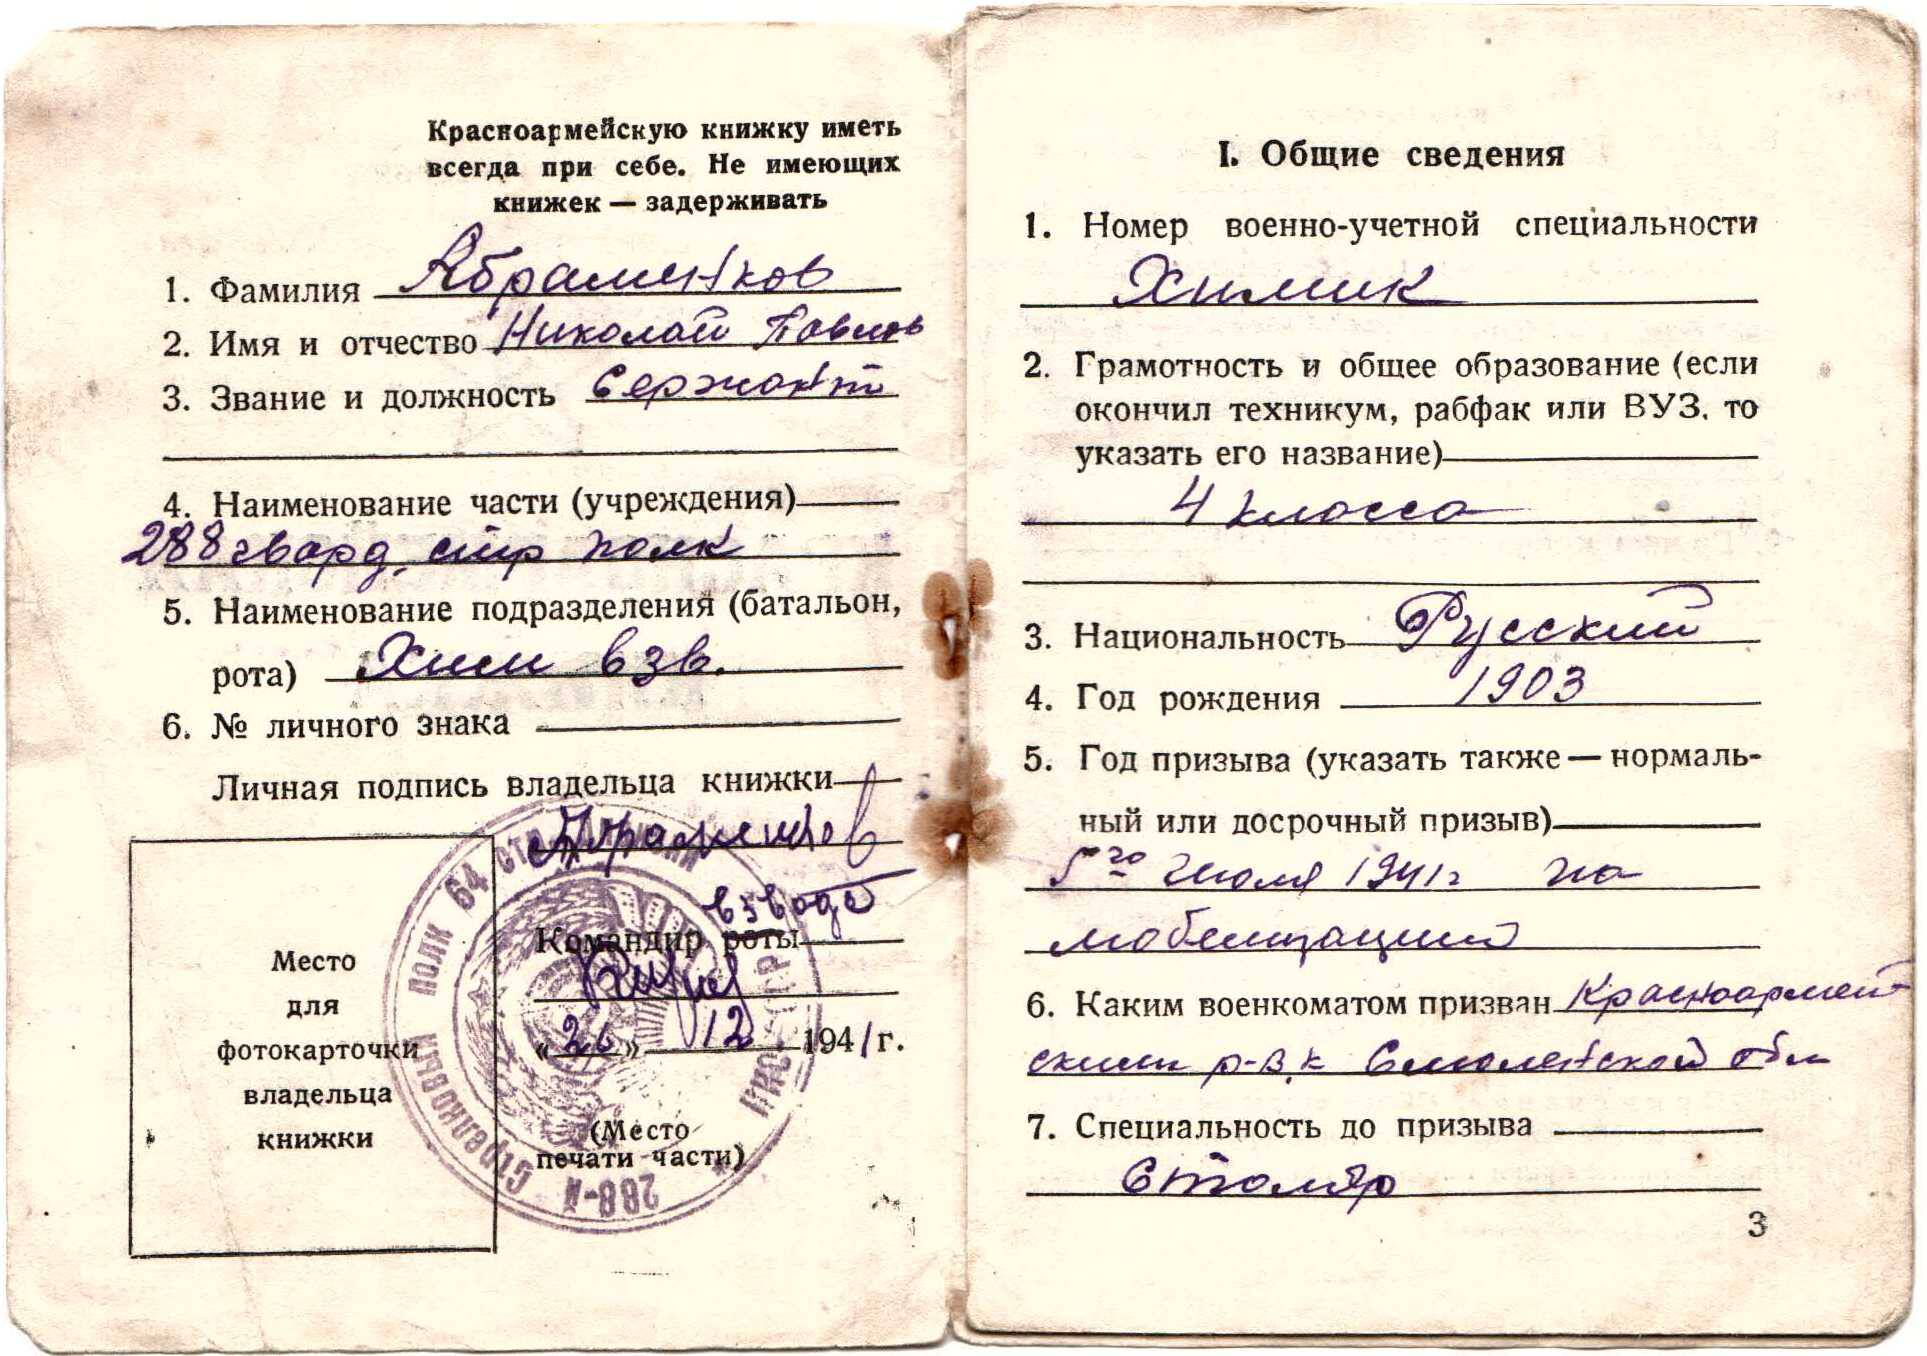 Красноармейскую книжку иметь
всегда при себе. Не имеющих
книжек — задерживать
1. Фамилия Абраменков
2. Имя и отчество Николай Павлов
3. Звание и должность Сержант
4. Наименование части (учреждения)
288 гвард. стр полк
5. Наименование подразделения (батальон,
рота) Хим взв.
6. № личного знака
Личная подпись владельца книжки
Абраменков
взвода
Командир роты
«26» 12 1941 г.
(Место
печати части)
Место
для
фотокарточки
владельца
книжки
288-й Стрелковый полк 64 стр. дивизии
I. Общие сведения
1. Номер военно-учетной специальности
Химик
2. Грамотность и общее образование (если
окончил техникум, рабфак или ВУЗ, то
указать его название)
4 класса
3. Национальность Русский
4. Год рождения 1903
5. Год призыва (указать также — нормаль-
ный или досрочный призыв)
5го Июля 1941г по
мобелизации
6. Каким военкоматом призван Красноармей
ским р-в.к Смоленской обл
7. Специальность до призыва
Столяр
3